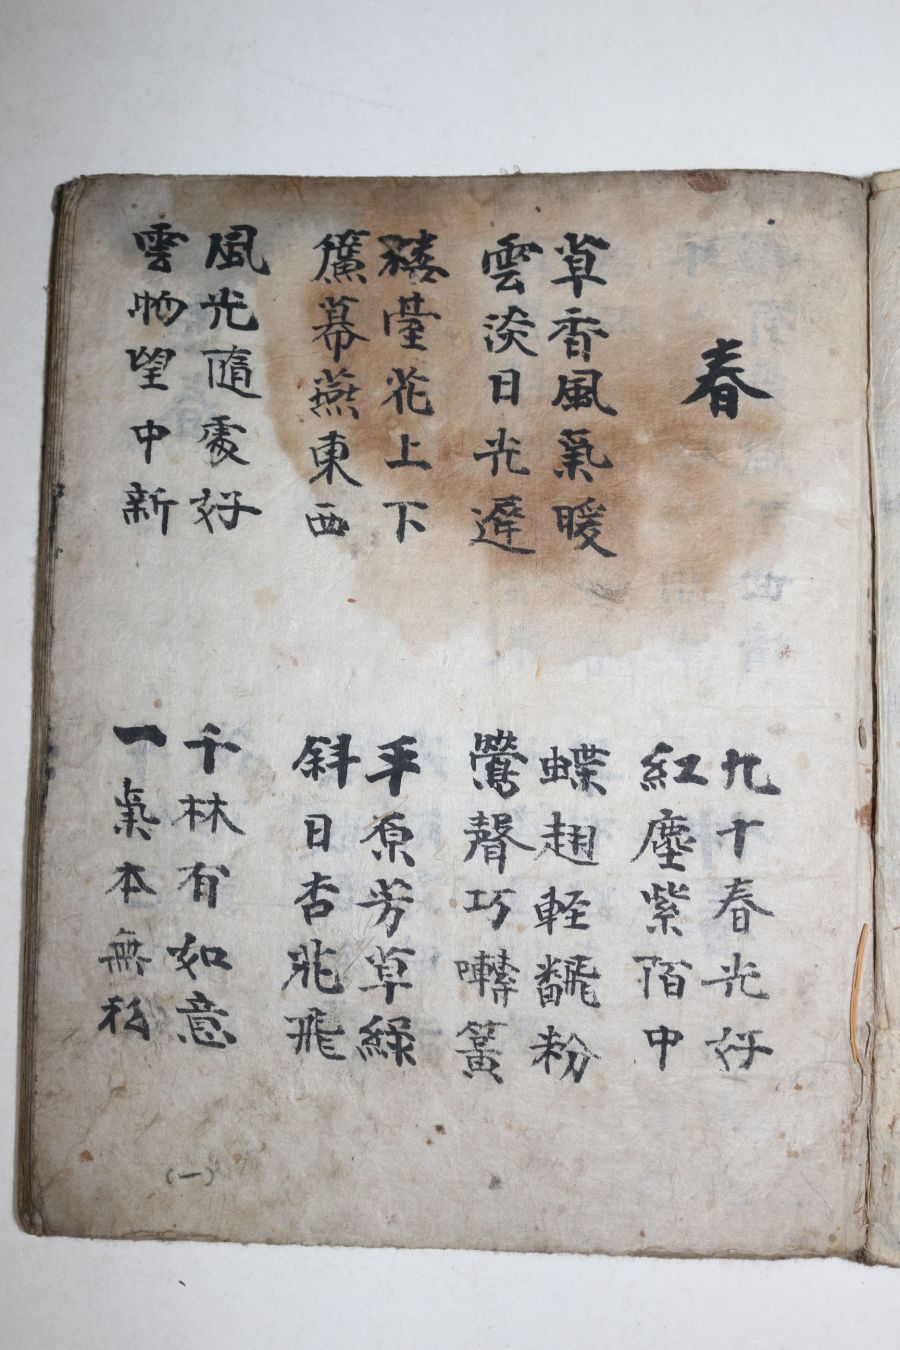 春
草香風氣暖
雲淡日光遲
樓臺花上下
簾幕燕東西
風光隨處好
雲物望中新
九十春光好
紅塵紫陌中
蝶翅軽飜粉
鶯聲巧囀簧
平原芳草綠
斜日杏花飛
千林有如意
一氣本無私
(一)